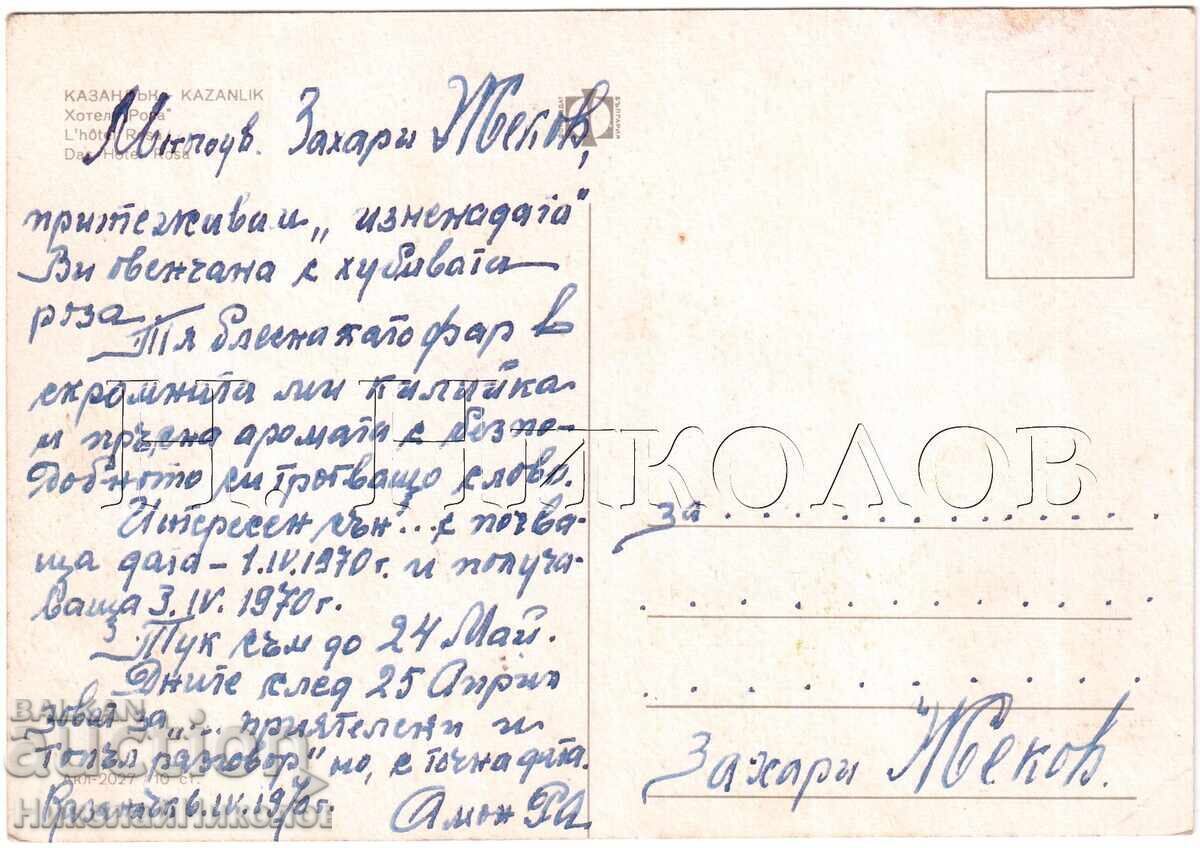 КАЗАНЛЪК - KAZANLIK
Хотел "Роза"
L'hôtel Rosa
Das Hotel Rosa
Многоув. Захари Жеков,
притежавам „изненадата"
Ви овенчана с хубавата
роза.
Тя блесна като фар в
скромната ми килийка
и пръсна аромата с безпо-
добното си трогващо слово.
Интересен сън... с почва-
ща дата - 1.IV.1970 г. и получа-
ваща 3.IV.1970 г.
Тук съм до 24 Май.
Дните след 25 Април
зоват за „... приятелски и
топъл разговор" но, с точна дата.
Казанлък 6.IV.1970 г.
Амон Ра
БЪЛГАРИЯ
за
Захари Жеков.
Н. НИКОЛОВ
BALKAN
auction
НиколайНиколов
Дюл-2027 10 ст.